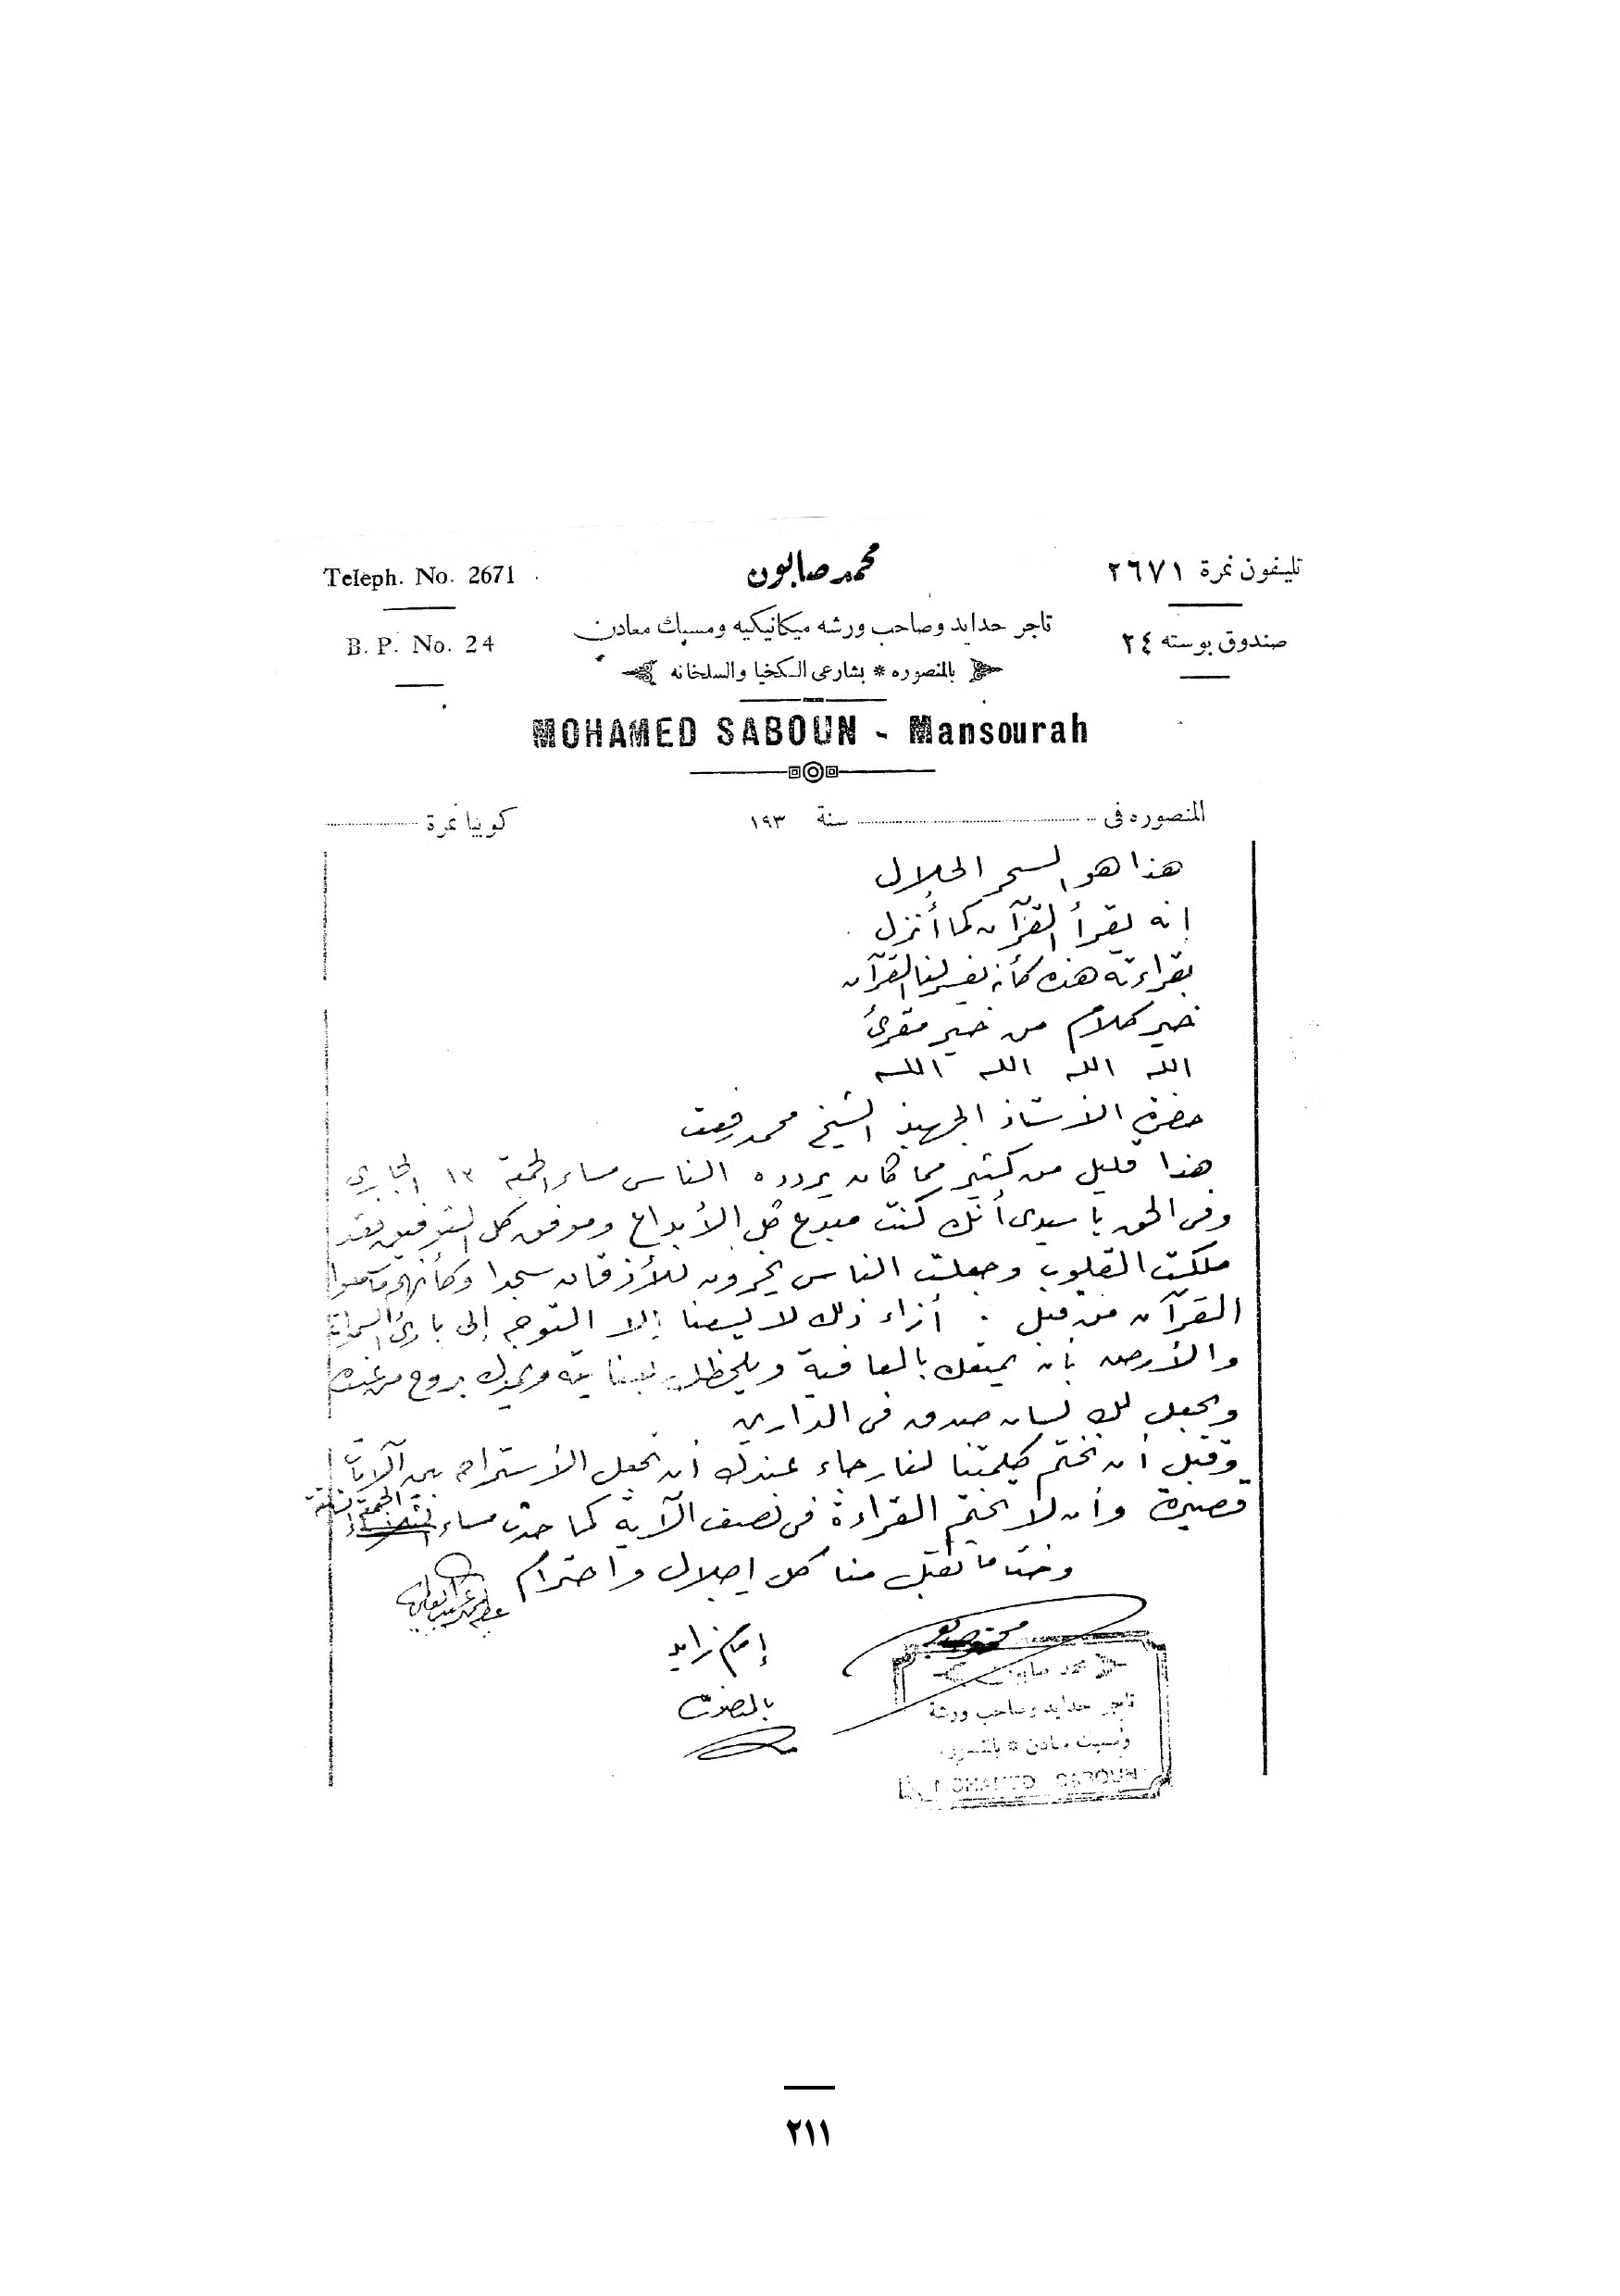 تليفون نمرة ٢٦٧١
محمد صابون
Teleph. No. 2671
صندوق بوسته ٢٤
تاجر حدايد وصاحب ورشه ميكانيكيه ومسبك معادن
B. P. No. 24
بالمنصوره * بشارعى الكخيا والسلخانه
MOHAMED SABOUN - Mansourah
المنصوره فى سنة ١٩٣
كوبيا نمرة
هذا هو السحر الحلال
إنه يقرأ القرآن كما أنزل
بقراءته هذه كأنه يفسر لنا القرآن
خير كلام من خير مقرئ
الله الله الله الله
حضرة الأستاذ الجهبذ الشيخ محمد رفعت
هذا قليل من كثير مما كان يردده الناس مساء الجمعة ١٣ الجارى
وفى الحق يا سيدى أنك كنت مبدع كل الأبداع وموفق كل التوفيق فقد
ملكت القلوب وجعلت الناس يخرون للأذقان سجدا وكأنهم ما سمعوا
القرآن من قبل . أزاء ذلك لا يسعنا إلا التوجه إلى بارئ السموات
والأرض بأن يمتعك بالعافية ويلحظك بعنايته ويمدك بروح من عنده
ويجعل لك لسان صدق فى الدارين
وقبل أن نختم كلمتنا لنا رجاء عندك أن تجعل الأستراحه بين الآيات
قصيرة وأن لا تختم القراءة فى نصف الآية كما حدث مساء الجمعة
وختاما تقبل منا كل إجلال واحترام
إمام زايد
بالمنصورة
محمد صابون
تاجر حدايد وصاحب ورشة
ومسبك معادن * بالمنصوره
MOHAMED SABOUN
٢١١